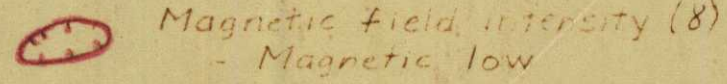 Magnetic field intensity (8)
- Magnetic low